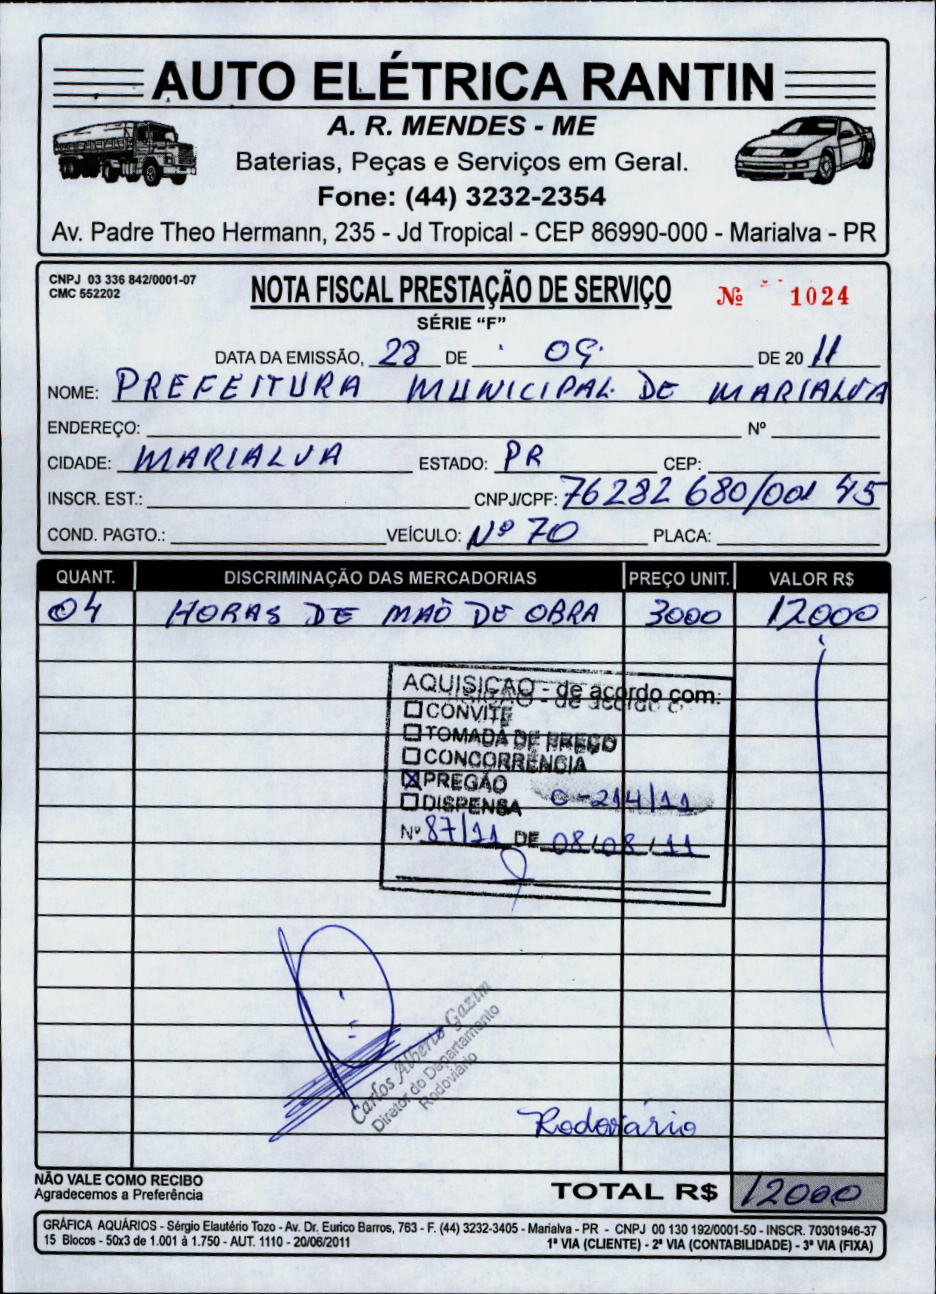 AUTO ELÉTRICA RANTIN
A. R. MENDES - ME
Baterias, Peças e Serviços em Geral.
Fone: (44) 3232-2354
Av. Padre Theo Hermann, 235 - Jd Tropical - CEP 86990-000 - Marialva - PR
CNPJ 03 336 842/0001-07
CMC 552202
NOTA FISCAL PRESTAÇÃO DE SERVIÇO
Nº 1024
SÉRIE "F"
DATA DA EMISSÃO, 28 DE 09 DE 2011
NOME: PREFEITURA MUNICIPAL DE MARIALVA
ENDEREÇO: Nº
CIDADE: MARIALVA ESTADO: PR CEP:
INSCR. EST.: CNPJ/CPF: 76282 680/001 45
COND. PAGTO.: VEÍCULO: Nº 70 PLACA:
QUANT. DISCRIMINAÇÃO DAS MERCADORIAS PREÇO UNIT. VALOR R$
04 HORAS DE MAÕ DE OBRA 3000 12000
AQUISIÇÃO - de acordo com:
CONVITE
TOMADA DE PREÇO
CONCORRÊNCIA
PREGÃO
DISPENSA C-214/11
Nº 87/11 DE 08/08/11
Carlos Alberto Gazim
Diretor do Departamento
Rodoviário
Rodoviário
NÃO VALE COMO RECIBO
Agradecemos a Preferência
TOTAL R$ 12000
GRÁFICA AQUÁRIOS - Sérgio Elautério Tozo - Av. Dr. Eurico Barros, 763 - F. (44) 3232-3405 - Marialva - PR - CNPJ 00 130 192/0001-50 - INSCR. 70301946-37
15 Blocos - 50x3 de 1.001 à 1.750 - AUT. 1110 - 20/06/2011
1ª VIA (CLIENTE) - 2ª VIA (CONTABILIDADE) - 3ª VIA (FIXA)